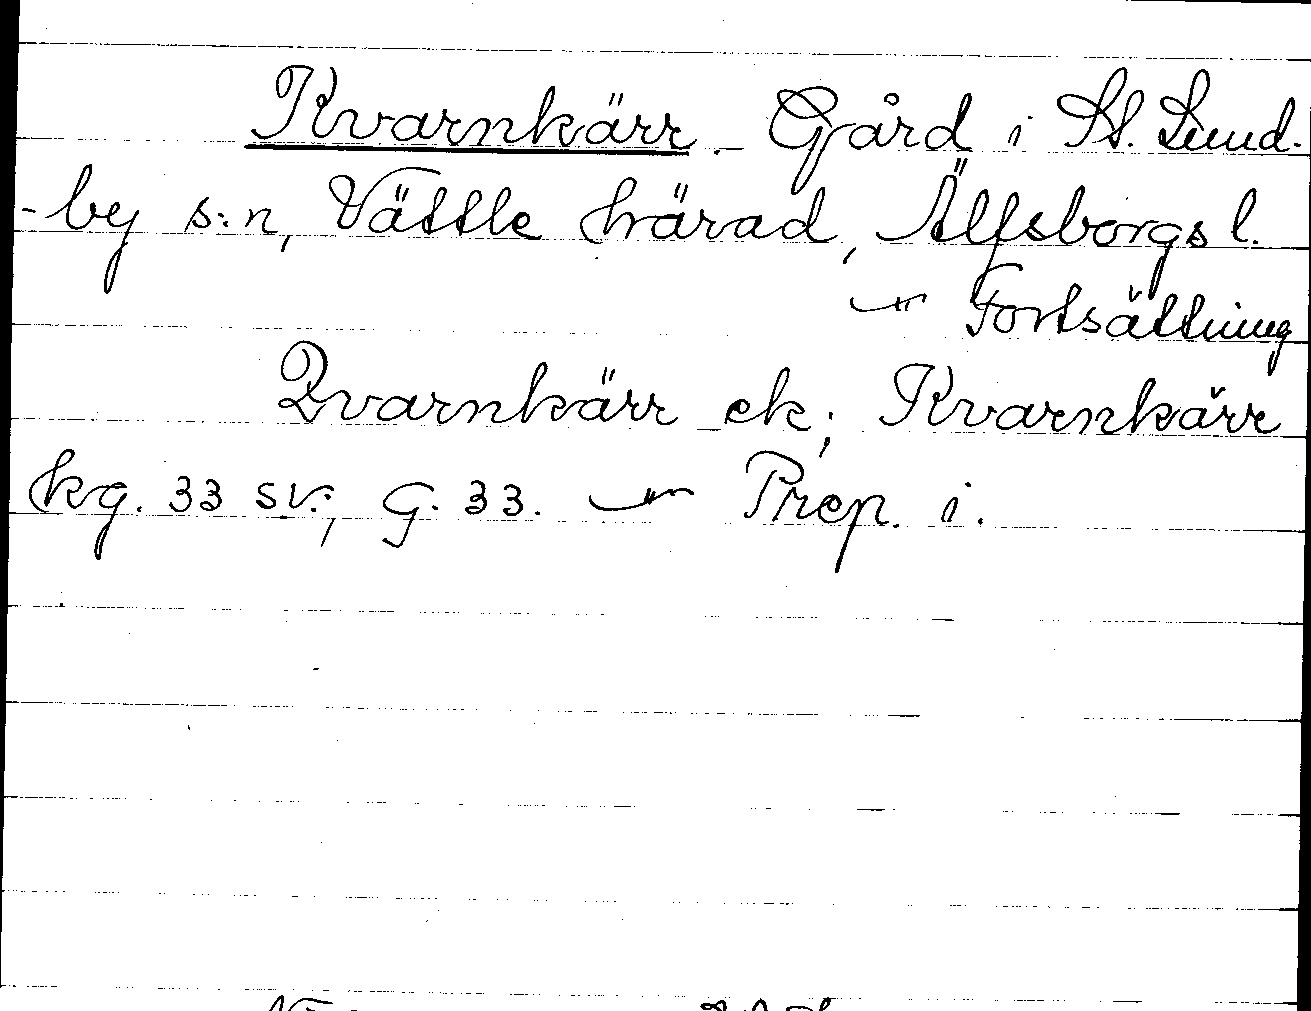 Kvarnkärr. Gård i St. Lund-
-by s:n, Vättle härad, Älfsborgs l.
-"- Fortsättning
Qvarnkärr ek; Kvarnkärr
kg. 33 sv.; G. 33. -"- Prep. i.